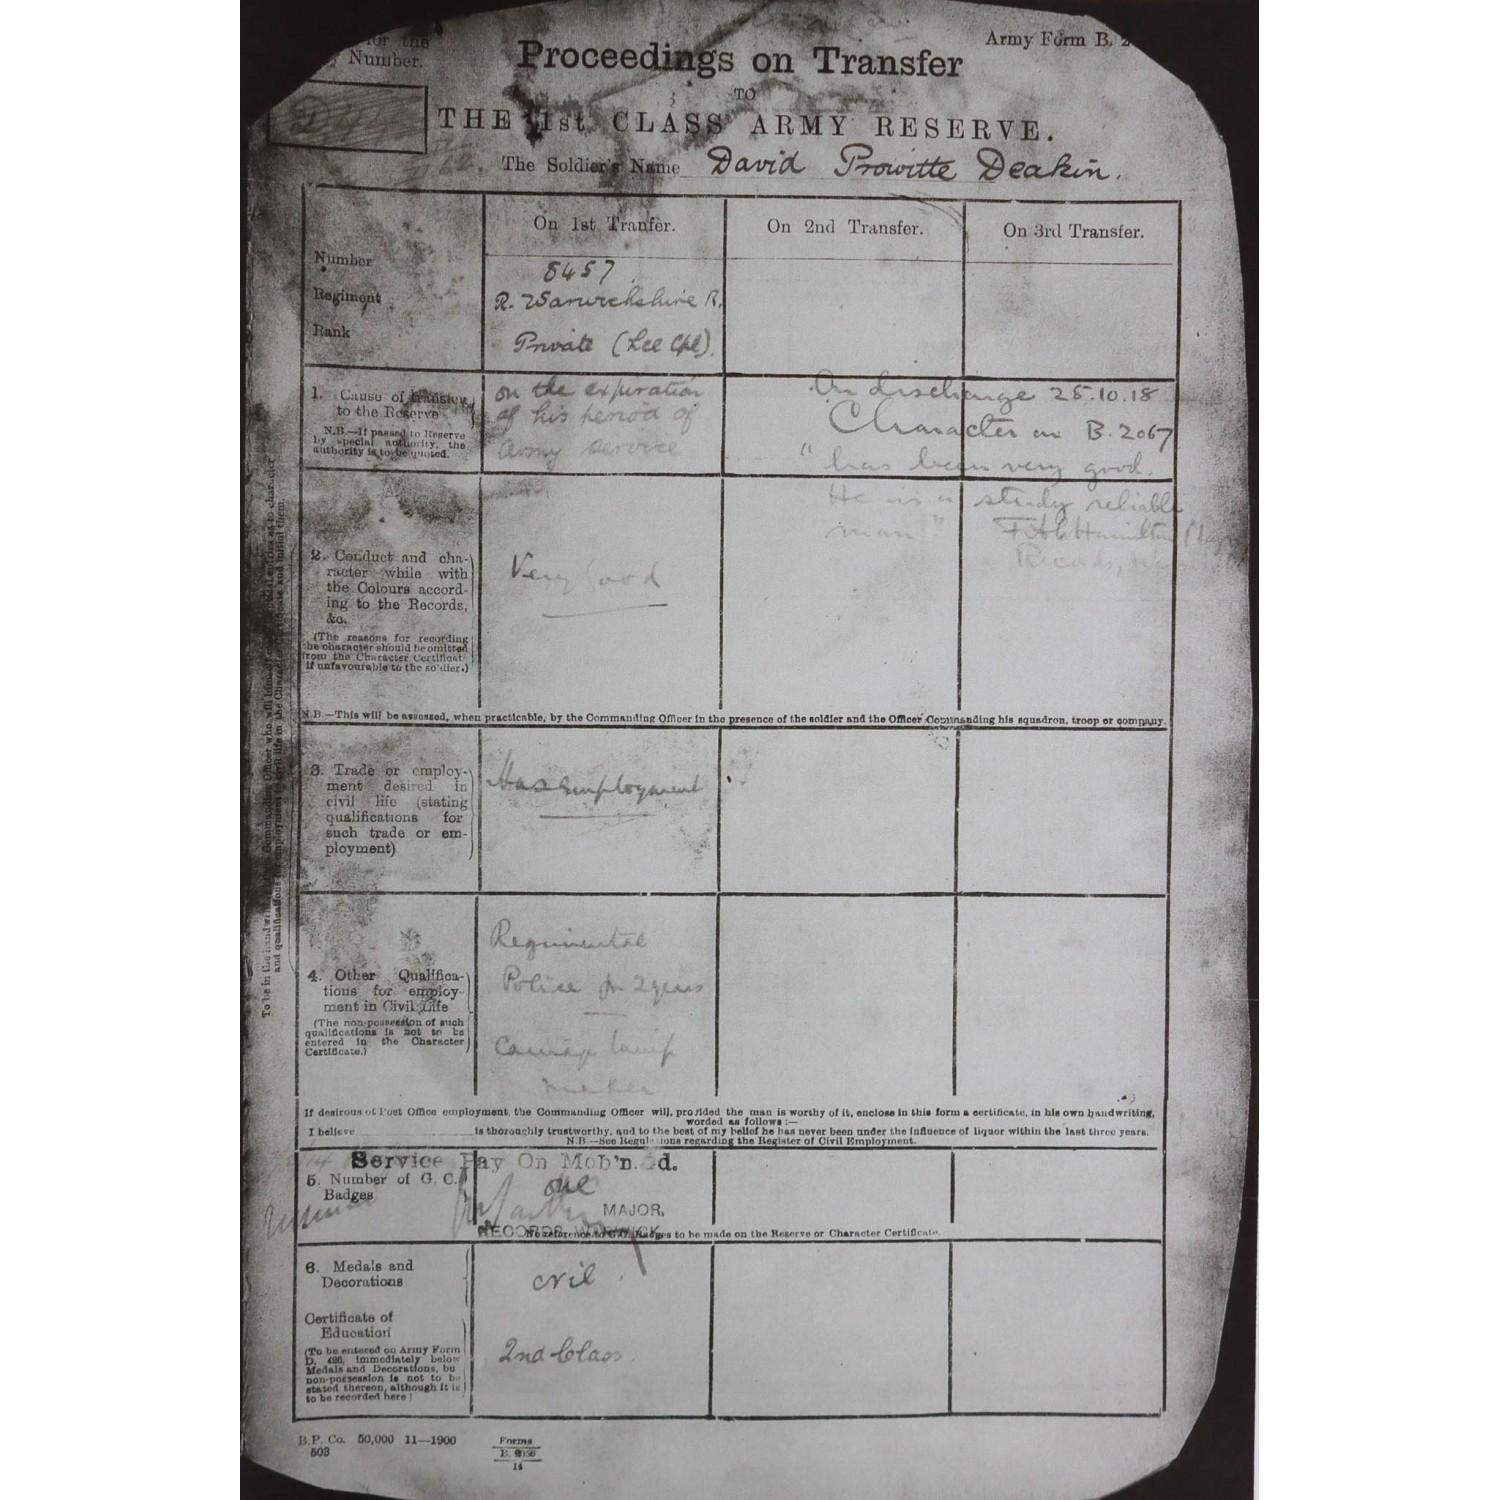 for the
Number.
Army Form B. 2
Proceedings on Transfer
TO
THE 1st CLASS ARMY RESERVE.
The Soldier's Name David Prowitte Deakin.
On 1st Tranfer.
On 2nd Transfer.
On 3rd Transfer.
Number 8457
Regiment R. Warwickshire R.
Rank Private (Lce Cpl).
1. Cause of transfer
to the Reserve
N.B.—If passed to Reserve
by special authority, the
authority is to be quoted.
on the expiration
of his period of
Army service
On discharge 25.10.18
Character on B. 2067
"has been very good.
He is a steady reliable
man"
Hamilton
Records,
2. Conduct and cha-
racter while with
the Colours accord-
ing to the Records,
&c.
(The reasons for recording
the character should be omitted
from the Character Certificate
if unfavourable to the soldier.)
Very Good
To be in the handwriting of the Commanding Officer who will
and qualifications for employment in civil life in the Character Certificate and initial them.
N.B.—This will be assessed, when practicable, by the Commanding Officer in the presence of the soldier and the Officer Commanding his squadron, troop or company.
3. Trade or employ-
ment desired in
civil life (stating
qualifications for
such trade or em-
ployment)
Has employment
4. Other Qualifica-
tions for employ-
ment in Civil Life
(The non-possession of such
qualifications is not to be
entered in the Character
Certificate.)
Regimental
Police for 2 years
Carriage lamp
maker
If desirous of Post Office employment, the Commanding Officer will, provided the man is worthy of it, enclose in this form a certificate, in his own handwriting,
worded as follows :—
I believe is thoroughly trustworthy, and to the best of my belief he has never been under the influence of liquor within the last three years.
N.B.—See Regulations regarding the Register of Civil Employment.
Service Pay On Mob'n. d.
5. Number of G. C.
Badges
one
MAJOR,
RECORDS WARWICK
No reference to G.C. Badges to be made on the Reserve or Character Certificate.
6. Medals and
Decorations
Nil
Certificate of
Education
(To be entered on Army Form
D. 426, immediately below
Medals and Decorations, bu
non-possession is not to be
stated thereon, although it is
to be recorded here)
2nd Class
B.P. Co. 50,000 11—1900
503
Forms
B. 2056
14